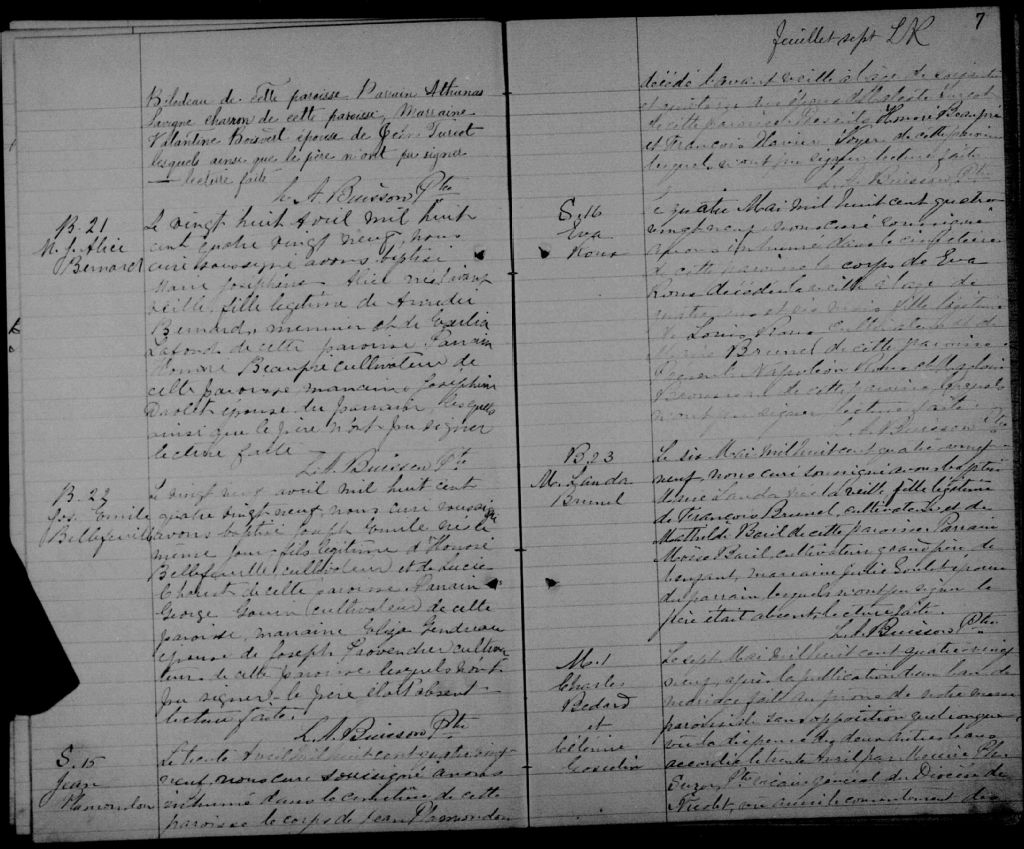 Bilodeau de cette paroisse Parrain Athanas
Lavigne charron de cette paroisse, Marraine
Valantine Boisvert épouse de Turcot
lesquels ainsi que le père n'ont pu signer
lecture faite
L. A. Buisson Ptre
B. 21
M. J. Alice
Bernard
Le vingt huit Avril mil huit
cent quatre vingt neuf, nous
curé soussigné avons baptisé
Marie Josephine Alice née l'avant
veille, fille legitime de
Bernard, meunier et de
Lafond de cette paroisse Parrain
Honoré Beaupré cultivateur de
cette paroisse marraine Josephine
épouse du parrain, lesquels
ainsi que le père n'ont pu signer
lecture faite
L. A. Buisson Ptre
B. 22
Jos. Emile
Bellefeuille
Le vingt neuf avril mil huit cent
quatre vingt neuf, nous curé soussigné
avons baptisé Joseph Emile né le
meme jour fils legitime d'Honoré
Bellefeuille, cultivateur et de Lucie
de cette paroisse Parrain
George cultivateur de cette
paroisse, marraine Elise Gendreau
épouse de Joseph Provencher cultiva
teur de cette paroisse lesquels n'ont
pu signer le père était absent
lecture faite.
L. A. Buisson Ptre
S. 15
Jean
Plamondon
Le trente Avril mil huit cent quatre vingt
neuf nous curé soussigné avons
inhumé dans le cimetière de cette
paroisse le corps de Jean Plamondon
feuillet sept LR
7
décédé l'avant veille à l'age de
et
de cette paroisse Présents Honoré Beaupré
et François Xavier de cette paroisse
lesquels n'ont pu signer lecture faite
L. A. Buisson Ptre
S. 16
Eva
Roux
Le quatre Mai mil huit cent quatre
vingt neuf nous curé soussigné
avons inhumé dans le cimetière
de cette paroisse le corps de Eva
Roux décédée la veille à l'age de
mois fille légitime
de Louis Roux cultivateur et de
Brunel de cette paroisse
Présents Napoleon Roux et
de cette paroisse lesquels
n'ont pu signer lecture faite.
L. A. Buisson Ptre
B. 23
M. Landa
Brunel
Le six Mai mil huit cent quatre vingt
neuf, nous curé soussigné avons baptisé
Marie Landa née la veille fille légitime
de François Brunel, cultivateur et de
Mathilde Baril de cette paroisse Parrain
Moïse Baril cultivateur grand père de
l'enfant, marraine Julie Houle épouse
du parrain lesquels n'ont pu signer le
père était absent lecture faite.
L. A. Buisson Ptre
M. 1
Charles
Bedard
et
Célenire
Gosselin
Le sept Mai mil huit cent quatre vingt
neuf, après la publication d'un ban de
mariage fait au prone de notre messe
paroissiale sans opposition quelconque
vu la dispense des deux autres bans
accordée le trente Avril par Messire
Suzor Ptre vicaire général du Diocèse de
Nicolet, vu aussi le consentement des